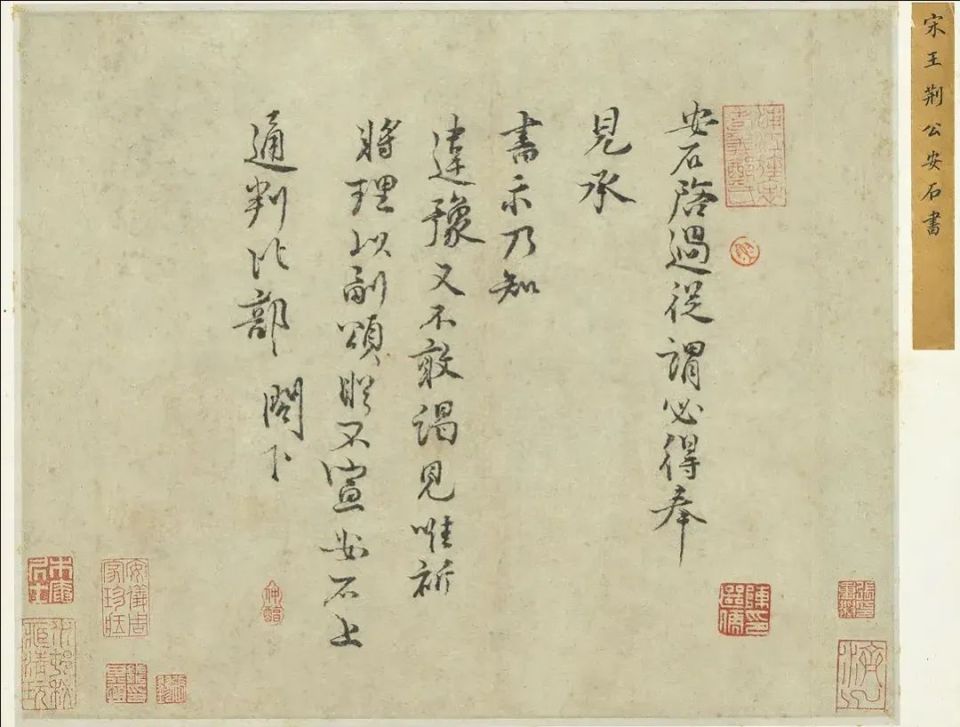 宋王荆公安石書
安石啓過從謂必得奉
見承
書示乃知
違豫又不敢謁見唯祈
將理以副頌眷不宣安石上
通判比部 閤下